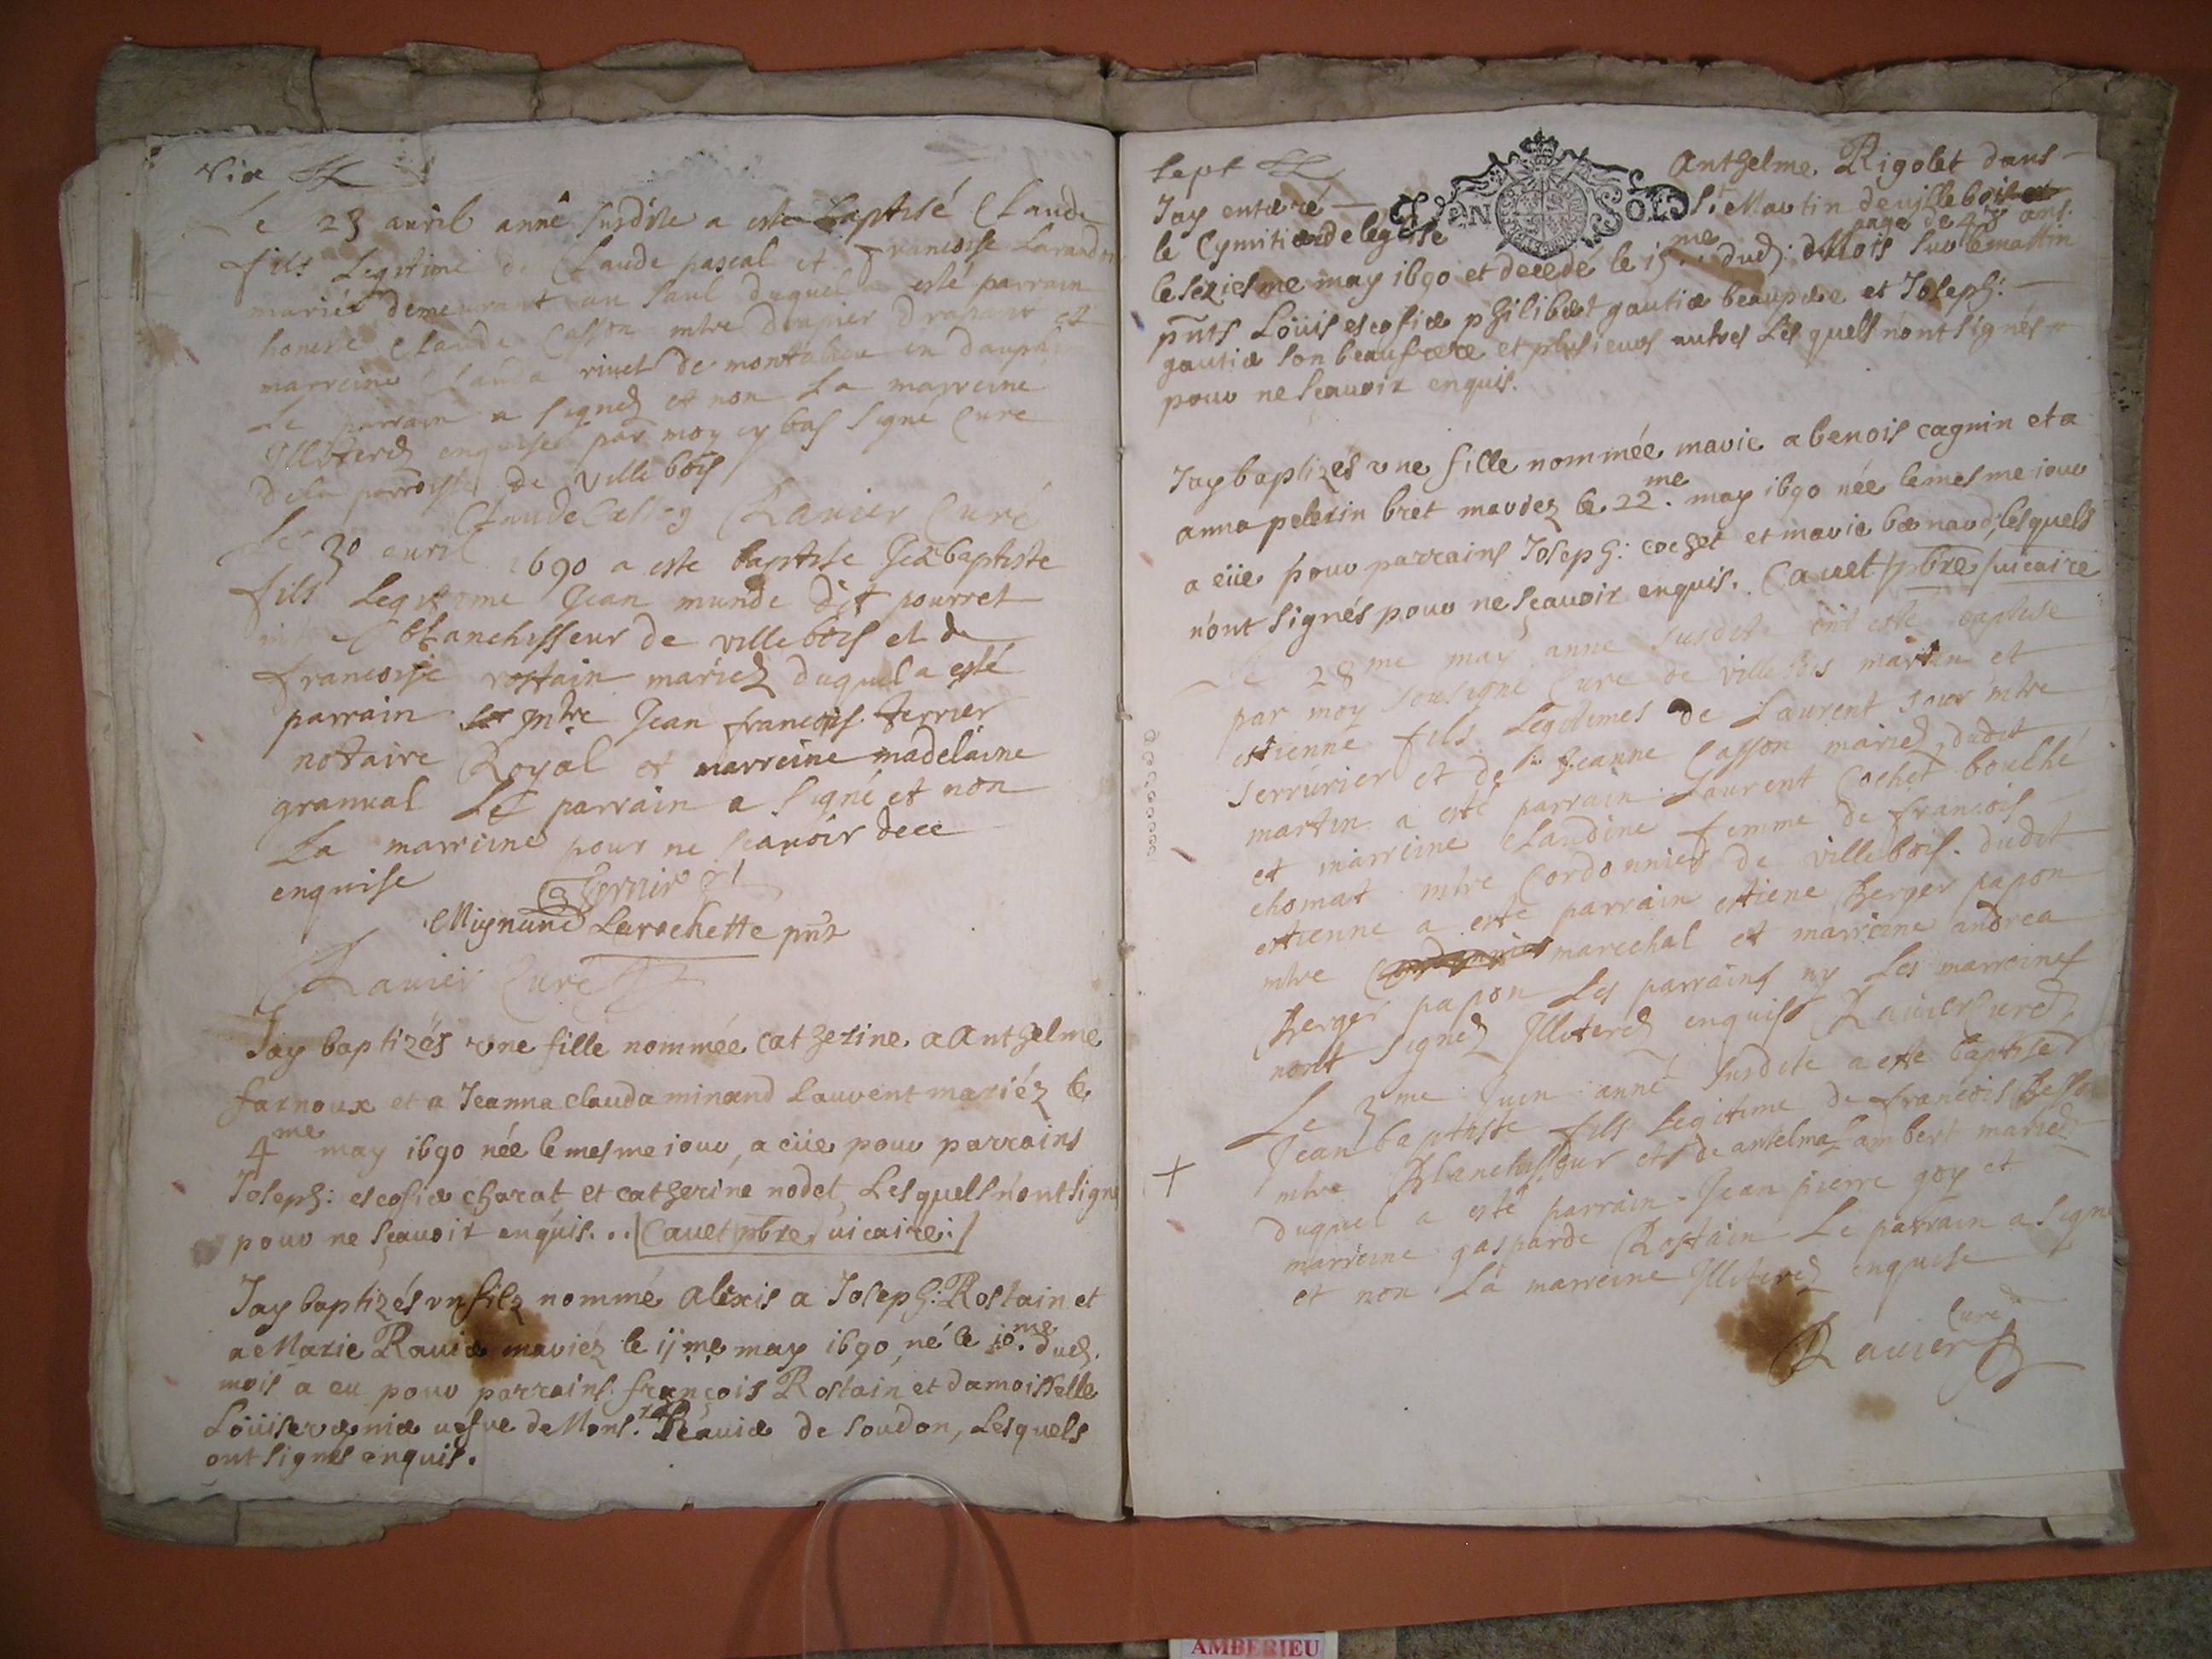 Six
Le 23 avril anné susdite a este baptisé Claude
fils Legitime de Claude pascal et francoise
mariés demeurant au Saul duquel a esté parrain
honeste Claude Casson mtre drapier drapant et
marreine Clauda rivet de montalieu en daupné
Le parrain a signez et non La marreine
Illiterez enquise par moy cy bas signé Curé
de la parroisse de Villebois
Claude Casson Ravier Curé
Le 30 avril 1690 a este baptise Jeã baptiste
fils Legitime Jean munde dit pourret
blanchisseur de villebois et de
francoise rostain mariez duquel a esté
parrain mtre Jean francois ferrier
notaire Royal et marreine madelaine
granval Le parrain a signé et non
La marreine pour ne scavoir de ce
enquise
Mignund Larochette pñt
Ravier Curé
Jay baptizés une fille nommée catherine a Anthelme
farnoux et a Jeanna clauda minand Laurent mariéz le
4me may 1690 née le mesme iour, a eüe pour parrains
Joseph: escofier charat et catherine nodet, Lesquels n'ont signé
pour ne sçavoir enquis... Cavet pbre vicaire:/
Jay baptizés un filz nommé alexis a Joseph: Rostain et
a Marie Ravier mariéz le 11me may 1690, né le 10me dud.
mois a eu pour parrains françois Rostain et damoiselle
Loüise vefve de Mons.r Ravier de Soudon, Lesquels
ont signés enquis.
sept
Jay enterré Anthelme Rigolet dans
UN SOL
le Cymitier de leglise St Martin de villebois
aagé de 48 ans
le seziesme may 1690 et decedé le 15me dud: Mois sur le mattin
pñts Loüis escofier philibert gautier beaupere et Joseph:
gautier son beaufrere et plusieurs autres Lesquels n'ont signés
pour ne sçavoir enquis.
Jay baptizés une fille nommée marie a benois cagnin et a
anna pelerin bret mariez le 22me may 1690 née le mesme iour
a eüe pour parrains Joseph: cochet et marie bernard, lesquels
n'ont signés pour ne sçavoir enquis. Cavet pbre vicaire
Le 28me may anné susdit ont este baptise
par moy sousigné Curé de villebois martin et
estienne fils Legitimes de Laurent mtre
serrurier et de Jeanne Casson mariez, dudit
martin a esté parrain Laurent Cochet bouché
et marreine Claudine femme de francois
chomat mtre Cordonnier de villebois. dudit
estienne a este parrain estiene Berger papon
mtre marechal et marreine andrea
Berger papon Les parrains ny Les marreines
nont signez Illiterez enquis Ravier Curé
Le 3me Juin anné susdite a este baptisé
Jean baptiste fils Legitime de francois
mtre Blanchisseur et de antelma Lambert mariez
duquel a esté parrain Jean pierre goy et
marreine gasparde Rostain Le parrain a signé
et non La marreine Illiterez enquise
Curé
Ravier
AMBERIEU